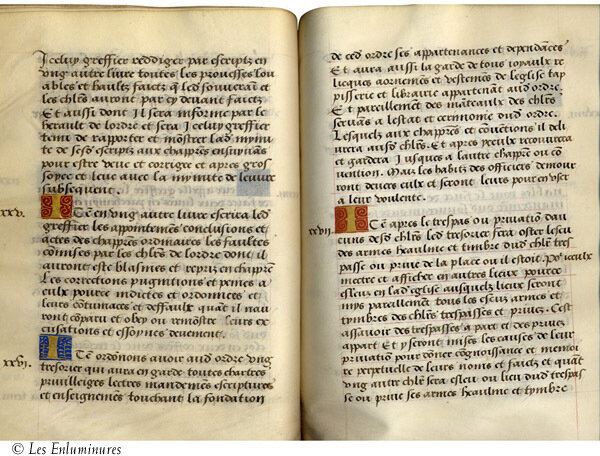 Icelluy greffier rediger par escriptz en
ung autre livre toutes les prouesses lou
ables et haultz faictz q̃ led̃ souverain et
les chlr̃s auront par cy devant faictz
Et aussi dont il sera informe par le
herault de lordre et sera Icelluy greffier
tenu de rapporter et mõstrer lad̃ mynu
te de sesd̃ escriptz aux chappr̃es ensuivans
pour estre veue et corrigee et apres gros
soyee et leue avec la mynute de leuvre
subsequent.
xxv.
Itẽ en ung autre livre escrira led̃
greffier les appointemẽs conclusions et
actes des chappr̃es ordinaires les faultes
cõmises par les chlr̃s de lordre dont il
auront este blasmes et repris en chappr̃e
Les corrections pugnitions et penes a
eulx pource indictes et ordonnees et
leurs contumaces et deffaulx quãt il nau
ront cõparu et obey ou remõstre leurs ex
cusations et essoynes deuement.
xxvi.
Itẽ ordõnons avoir aud̃ ordre ung
tresorier qui aura en garde toutes chartres
privilleiges lectres mandemẽs escriptures
et enseignemẽs touchant la fondation
de ced̃ ordre ses appartenances et dependãces
Et aura aussi la garde de tous ioyaulx re
licques aornemẽs et vestemẽs de leglise tap
pisserie et librairie appartenant aud̃ ordre.
Et pareillement des mãteaulx des chlr̃s
servãs a lestat et cerimonie dud̃ ordre.
Lesquelz aux chappr̃es et cõvẽtions il deli
vrera ausd̃ chlr̃s. Et apres yceulx recouvrera
et gardera Jusques a lautre chappr̃e ou cõ
vention. Mais les habits des officiers demou
ront devers eulx et seront leurs pour en user
a leur voulente.
xxvii.
Itẽ apres le trespas ou privatiõ dau
cuns desd̃ chlr̃s led̃ tresorier fera oster lescu
des armes heaulme et timbre dud̃ chlr̃ tres
passe ou prive de la place ou il estoit. Po͛ iceulx
mectre et afficher en autres lieux pource
esleuz en lad̃ eglise ausquelz lieux seront
mys pareillement tous les escuz armes et
tymbres des chlr̃s trespasses et privez. Cest
assavoir des trespasses a part et des privez
appart Et y seront mises les causes de leur
privation pour dõner cõgnoissance et memoi
re perpetuelle de leurs noms et faictz et quãt
ung autre chlr̃ sera esleu ou lieu dud̃ trespas
se ou prive ses armes heaulme et tymbre
© Les Enluminures